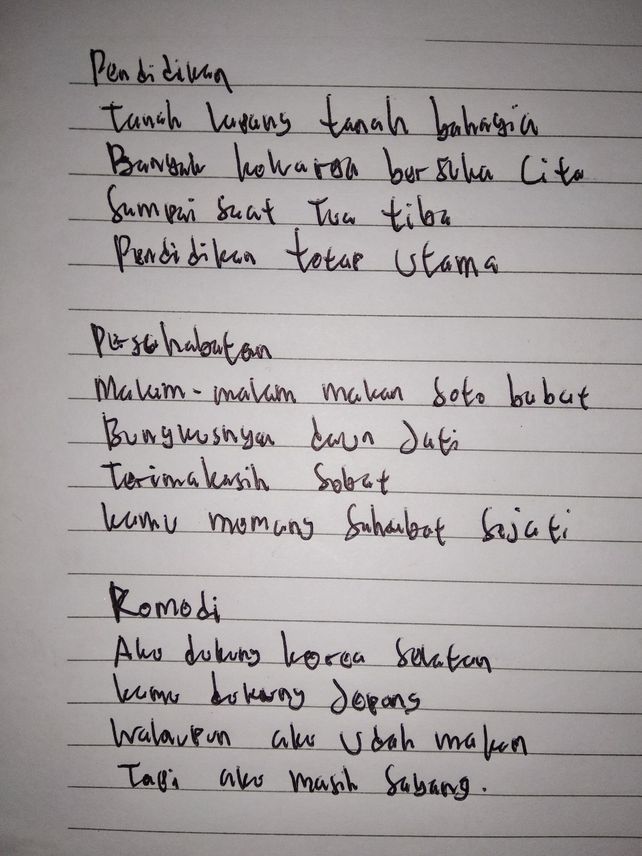 Pendidikan
Tanah lapang tanah bahagia
Banyak keluarga bersuka cita
Sampai saat Tua tiba
Pendidikan tetap utama
Persahabatan
Malam-malam makan soto babat
Bungkusnya daun Jati
Terimakasih Sobat
kamu memang Sahabat Sejati
Komedi
Aku dukung korea Selatan
kamu dukung Jepang
Walaupun aku Udah makan
Tapi aku masih